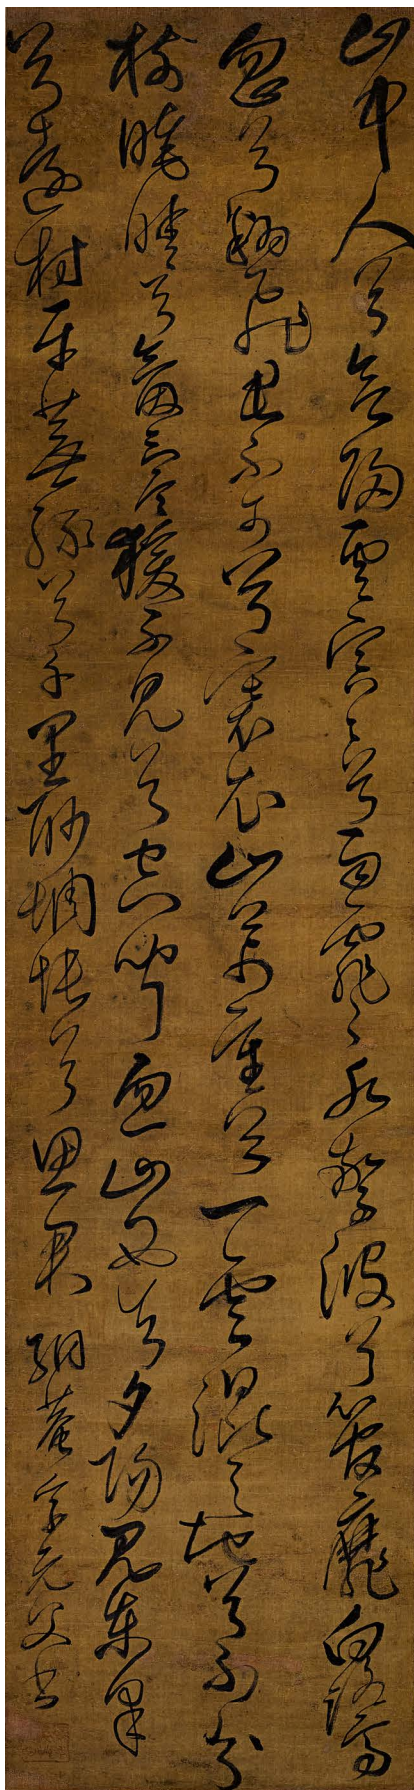 山中人兮欲歸雲冥冥兮雨霏霏水驚波兮菅靡白鷺
忽兮翻飛君不可兮褰衣山萬重兮一雲混天地兮不分
樹晻曖兮氛氳猿不見兮空聞忽山西兮夕陽見東皋
兮遠村平蕪綠兮千里眇惆悵兮思君 絅菴宗元父書